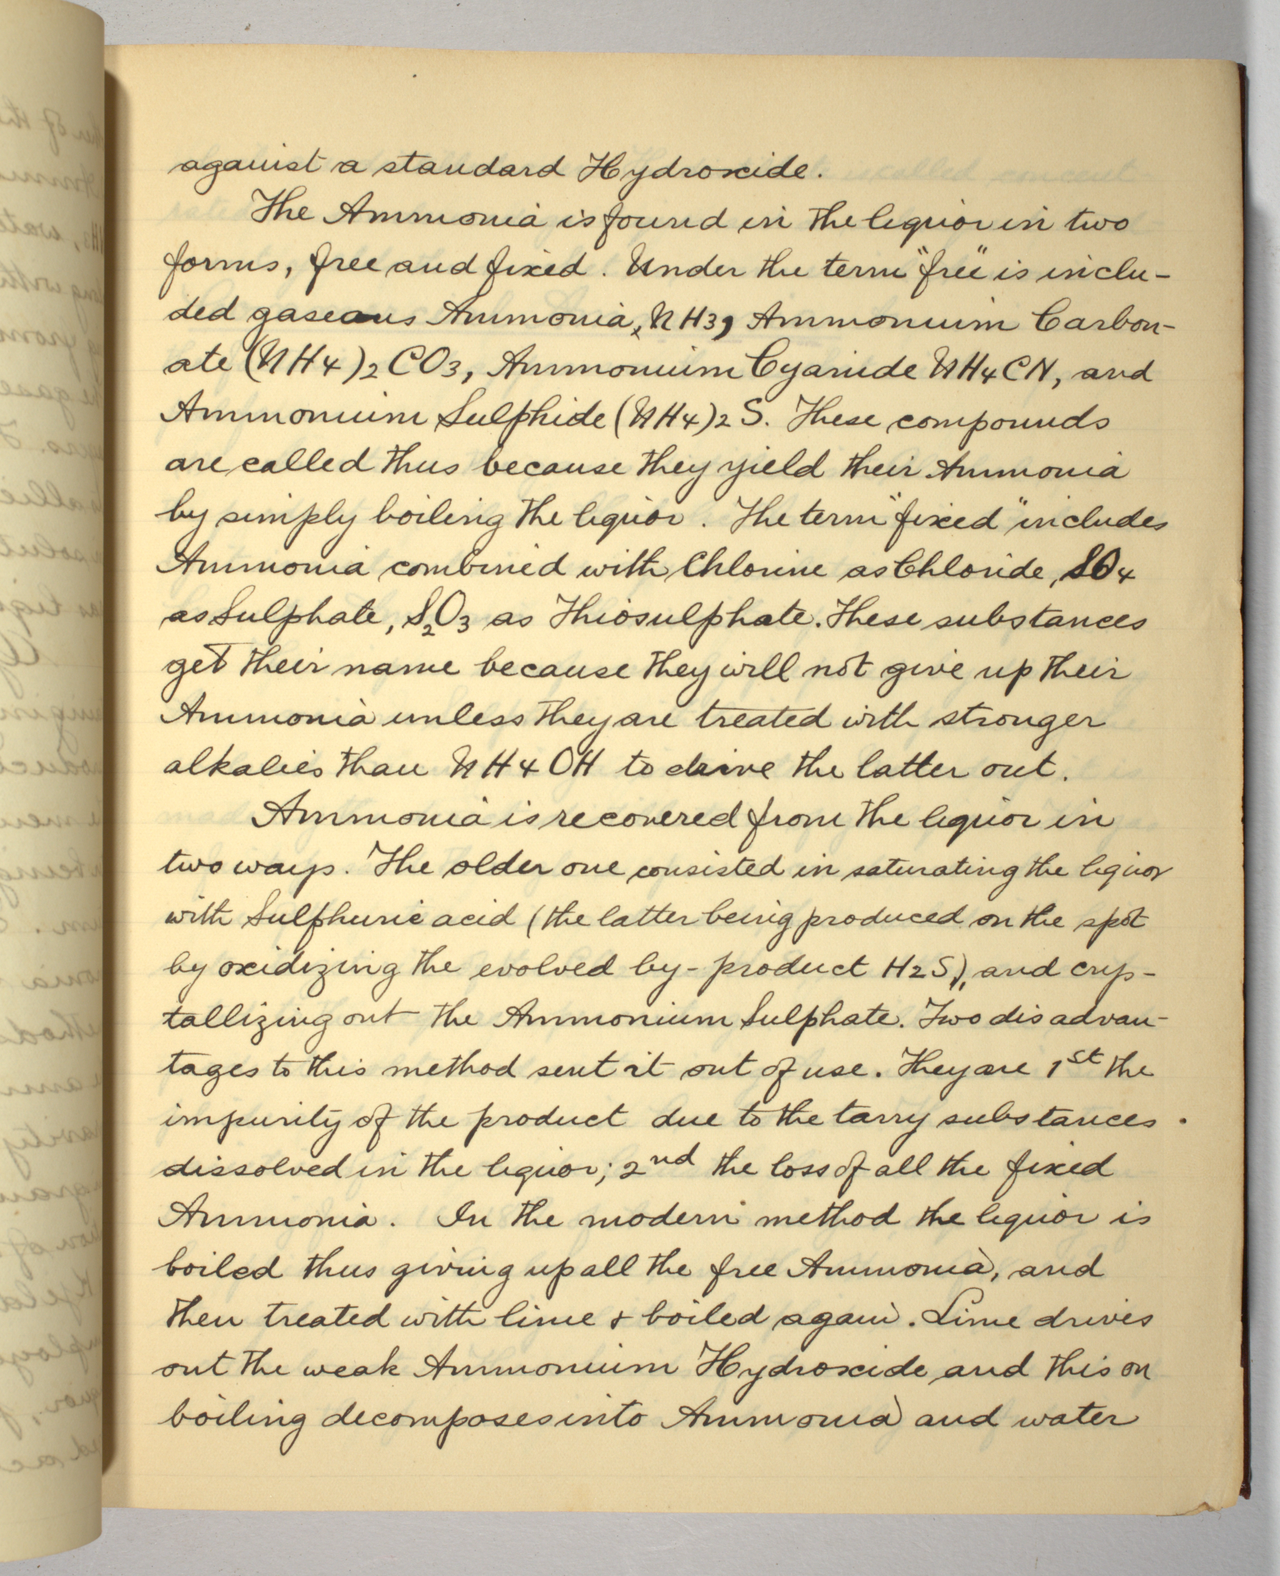 against a standard Hydroxide.
The Ammonia is found in the liquor in two
forms, free and fixed. Under the term "free" is inclu-
ded gaseous Ammonia, NH3, Ammonium Carbon-
ate (NH4)2CO3, Ammonium Cyanide NH4CN, and
Ammonium Sulphide (NH4)2S. These compounds
are called thus because they yield their Ammonia
by simply boiling the liquor. The term "fixed" includes
Ammonia combined with Chlorine as Chloride, SO4
as Sulphate, S2O3 as Thiosulphate. These substances
get their name because they will not give up their
Ammonia unless they are treated with stronger
alkalies than NH4OH to drive the latter out.
Ammonia is recovered from the liquor in
two ways. The older one consisted in saturating the liquor
with Sulphuric acid (the latter being produced on the spot
by oxidizing the evolved by-product H2S), and crys-
tallizing out the Ammonium Sulphate. Two disadvan-
tages to this method sent it out of use. They are 1st the
impurity of the product due to the tarry substances
dissolved in the liquor; 2nd the loss of all the fixed
Ammonia. In the modern method the liquor is
boiled thus giving up all the free Ammonia, and
then treated with lime & boiled again. Lime drives
out the weak Ammonium Hydroxide and this on
boiling decomposes into Ammonia and water